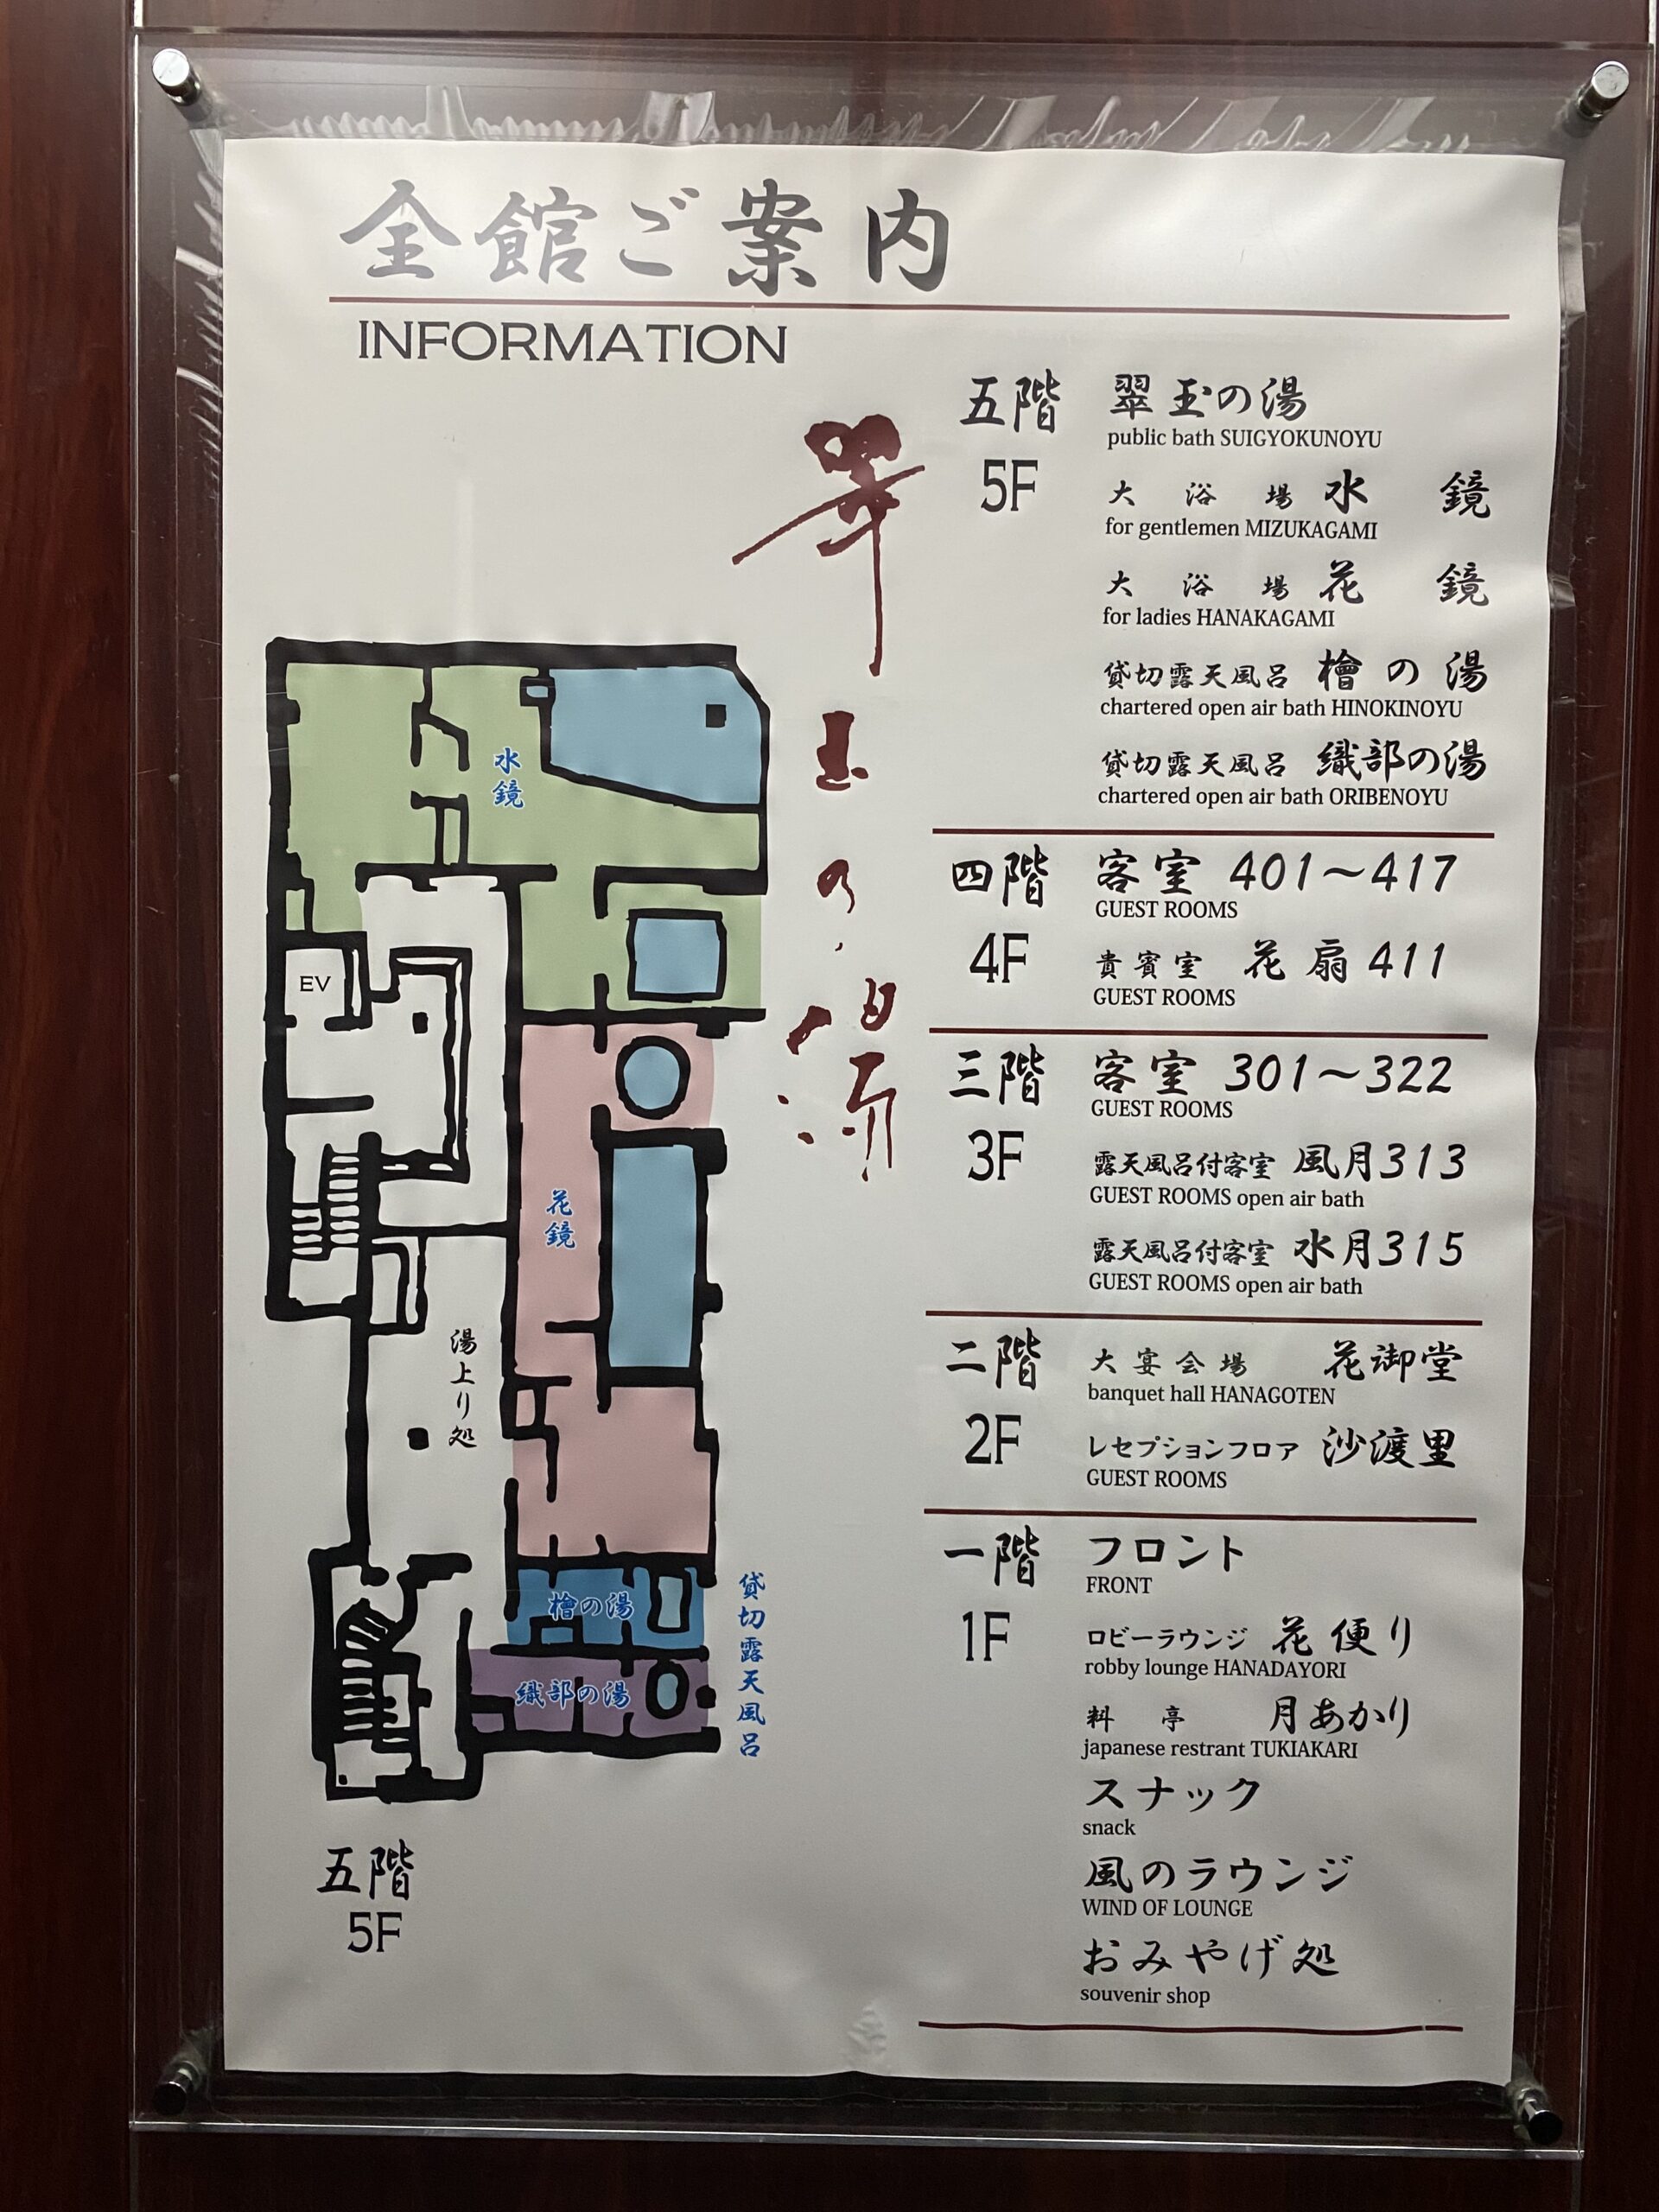 全館ご案内
INFORMATION
翠玉の湯
水鏡
EV
花鏡
湯上り処
檜の湯
織部の湯
貸切露天風呂
五階
5F
五階 翠玉の湯
5F public bath SUIGYOKUNOYU
大浴場 水鏡
for gentlemen MIZUKAGAMI
大浴場 花鏡
for ladies HANAKAGAMI
貸切露天風呂 檜の湯
chartered open air bath HINOKINOYU
貸切露天風呂 織部の湯
chartered open air bath ORIBENOYU
四階 客室 401～417
GUEST ROOMS
4F 貴賓室 花扇 411
GUEST ROOMS
三階 客室 301～322
GUEST ROOMS
3F 露天風呂付客室 風月313
GUEST ROOMS open air bath
露天風呂付客室 水月315
GUEST ROOMS open air bath
二階 大宴会場 花御堂
banquet hall HANAGOTEN
2F レセプションフロア 沙渡里
GUEST ROOMS
一階 フロント
FRONT
1F ロビーラウンジ 花便り
robby lounge HANADAYORI
料亭 月あかり
japanese restrant TUKIAKARI
スナック
snack
風のラウンジ
WIND OF LOUNGE
おみやげ処
souvenir shop